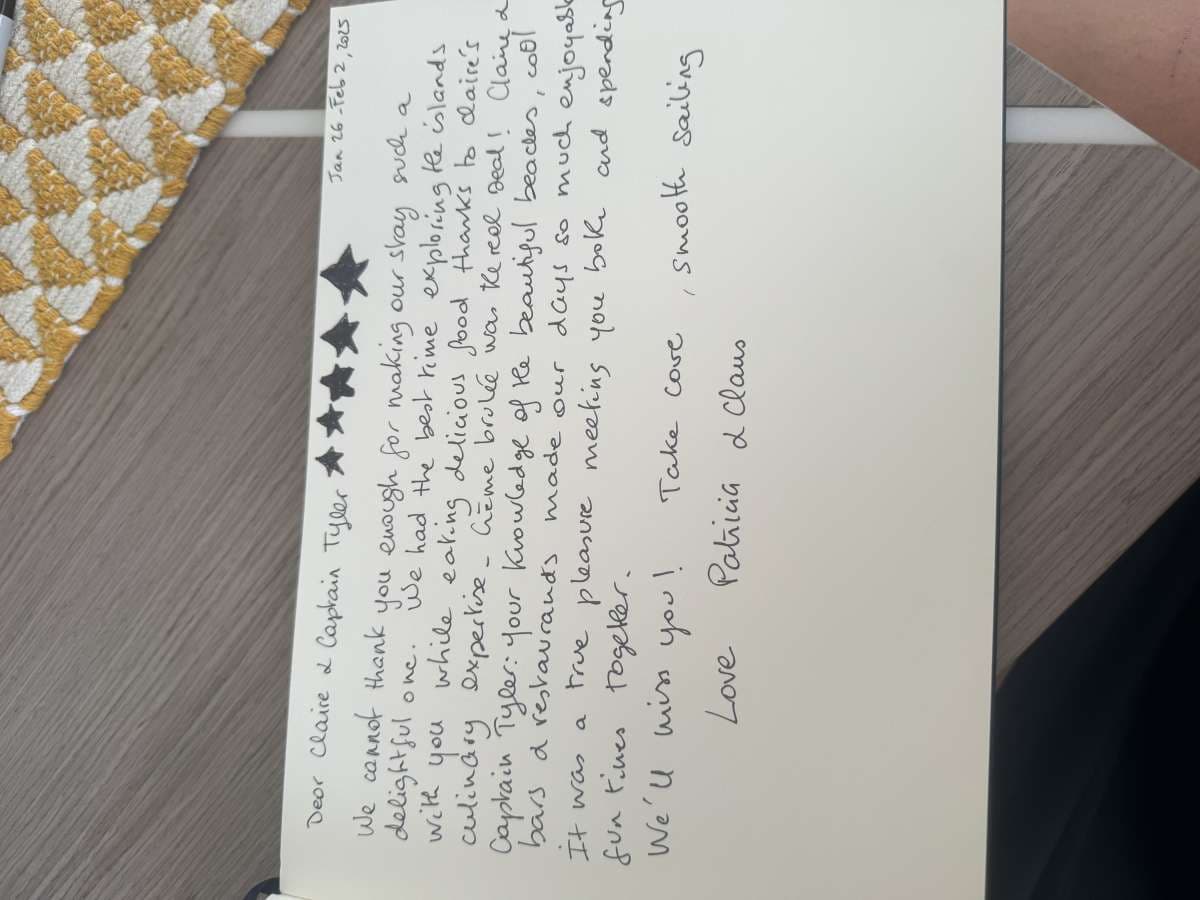 Jan 26 - Feb 2, 2025
Dear Claire & Captain Tyler ★★★★★
We cannot thank you enough for making our stay such a
delightful one. We had the best time exploring the islands
with you while eating delicious food thanks to Claire's
culinary expertise - crème brulée was the real deal! Claire &
Captain Tyler: your knowledge of the beautiful beaches, cool
bars & restaurands made our days so much enjoyable
It was a true pleasure meeting you both and spending
fun times together.
We'll miss you! Take care, smooth sailing
Love Patricia & Claus